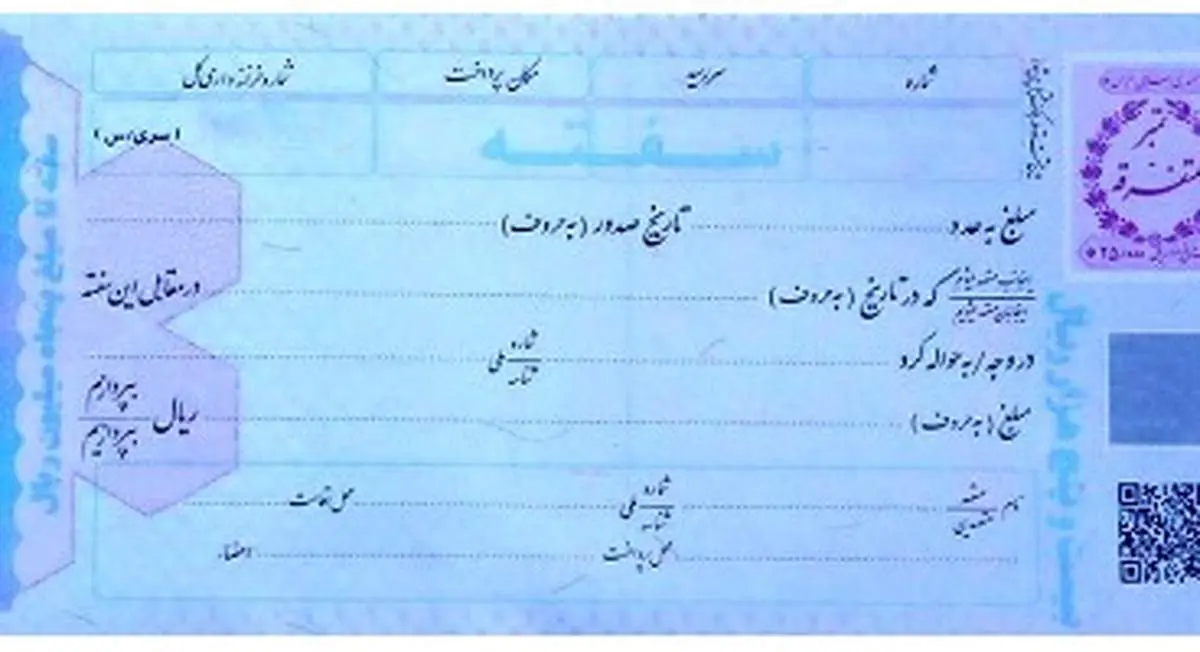 شماره
سررسید
مکان پرداخت
شماره خزانه داری کل
سفته
(سری/س)
مبلغ به عدد تاریخ صدور (به حروف)
که در تاریخ (به حروف) در مقابل این سفته
در وجه/به حواله کرد شماره ملی
شناسه
مبلغ (به حروف) ریال بپردازم
بپردازیم
نام متعهد
متعهدین
شماره ملی
شناسه
محل اقامت
محل پرداخت امضاء
سفته تا مبلغ پنجاه میلیون ریال
بیست و پنج هزار ریال
تمبر
متفرقه